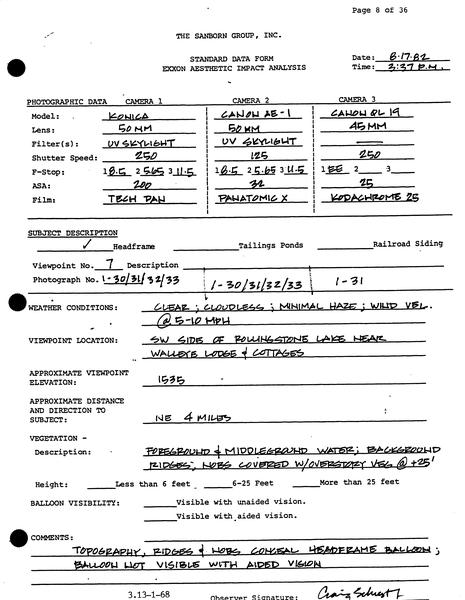 Page 8 of 36
THE SANBORN GROUP, INC.
STANDARD DATA FORM
EXXON AESTHETIC IMPACT ANALYSIS
Date: 8.17.82
Time: 3:37 P.M.
PHOTOGRAPHIC DATA CAMERA 1 CAMERA 2 CAMERA 3
Model: KONICA CANON AE-1 CANON QL 19
Lens: 50MM 50MM 45MM
Filter(s): UV SKYLIGHT UV SKYLIGHT —
Shutter Speed: 250 125 250
F-Stop: 1 8.5 2 5.65 3 11.5 1 8.5 2 5.65 3 11.5 1 2 3
ASA: 200 32 25
Film: TECH PAN PANATOMIC X KODACHROME 25
SUBJECT DESCRIPTION
✓ Headframe Tailings Ponds Railroad Siding
Viewpoint No. 7 Description
Photograph No. 1-30/31/32/33 1-30/31/32/33 1-31
WEATHER CONDITIONS: CLEAR; CLOUDLESS; MINIMAL HAZE; WIND VEL.
@ 5-10 MPH
VIEWPOINT LOCATION: SW SIDE OF ROLLINGSTONE LAKE NEAR
WALLEYE LODGE & COTTAGES
APPROXIMATE VIEWPOINT
ELEVATION: 1535
APPROXIMATE DISTANCE
AND DIRECTION TO
SUBJECT: NE 4 MILES
VEGETATION -
Description: FOREGROUND & MIDDLEGROUND WATER; BACKGROUND
RIDGES; NOBS COVERED W/OVERSTORY VEG @ +25'
Height: Less than 6 feet 6-25 Feet More than 25 feet
BALLOON VISIBILITY: Visible with unaided vision.
Visible with aided vision.
COMMENTS:
TOPOGRAPHY, RIDGES & NOBS CONCEAL HEADFRAME BALLOON;
BALLOON NOT VISIBLE WITH AIDED VISION
3.13-1-68 Observer Signature: Craig